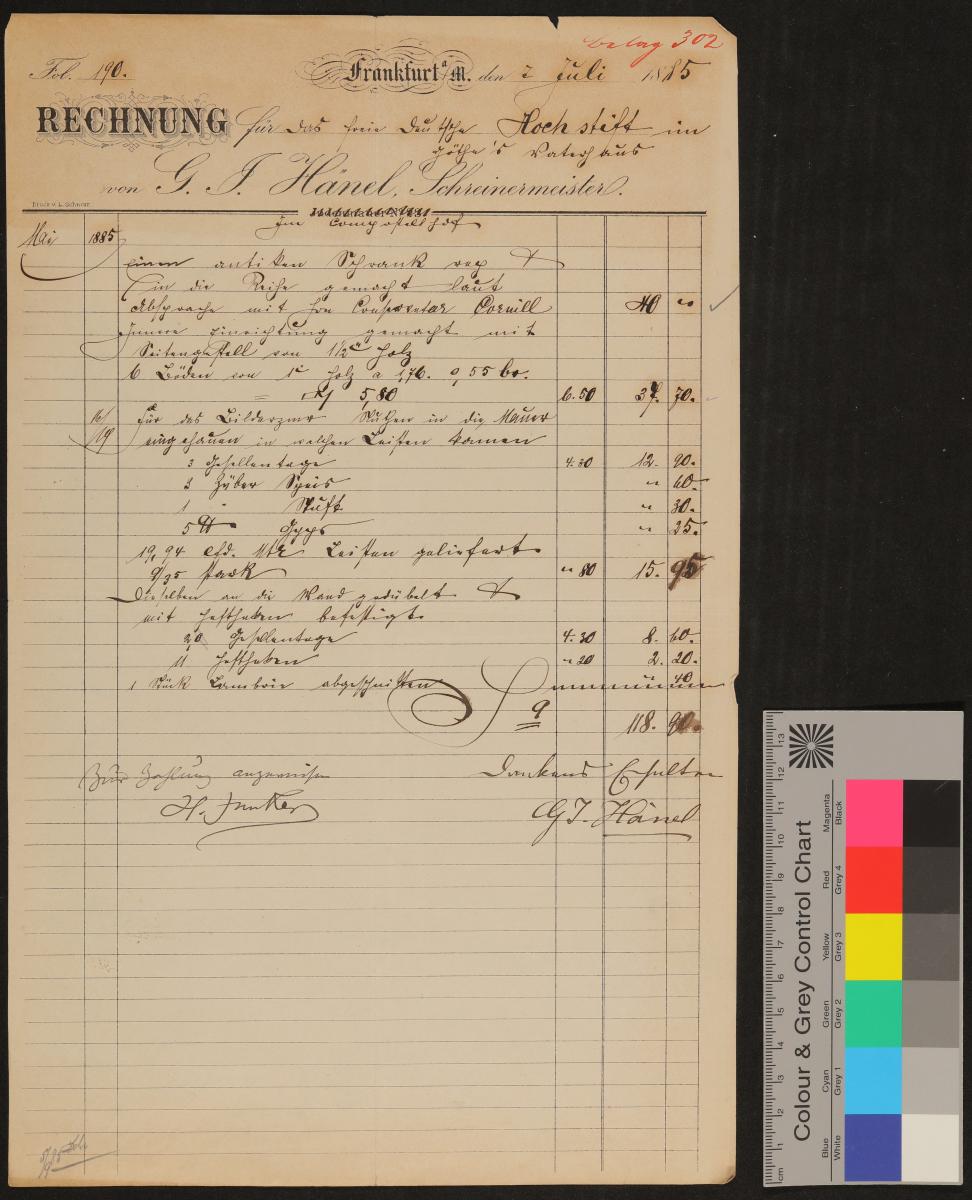 Belag 302
Fol. 190. Frankfurt a/M. den 2 Juli 1885
RECHNUNG für das freie deutsche Hochstift im
Göthe's Vaterhaus
von G. J. Hänel, Schreinermeister.
Druck v. L. Schnorr
Im Compostellhof
Mai 1885
einen antiken Schrank rep &
in die Reihe gemacht laut
Absprache mit Hrn Conservator Cornill 40 "
Innere Einrichtung gemacht mit
Seitengestell von 1 1/2" Holz
6 Böden von 1" Holz a 1,76. 0,55 br.
= 5,80 6.50 37. 70.
16/19 für das Bilderzimr in die Mauer
eingehauen in welchen Leisten kommen
3 Gesellentage 4.30 12. 90.
3 Züber Speis " 60.
1 " " 30.
5 ℔ Gyps " 25.
19,94 lfd. Mtr Leisten geliefert
9/35 stark " 80 15. 95
Dieselben an die Wand gedübelt &
mit Hefthaken befestigt
2,0 Gesellentage 4.30 8. 60.
11 Hefthaken " 20 2. 20.
1 Stück Lambrie abgeschnitten " 40
Summa
118. 90.
Zur Zahlung angewiesen Dankend Erhalten
H. Junker G J. Hänel